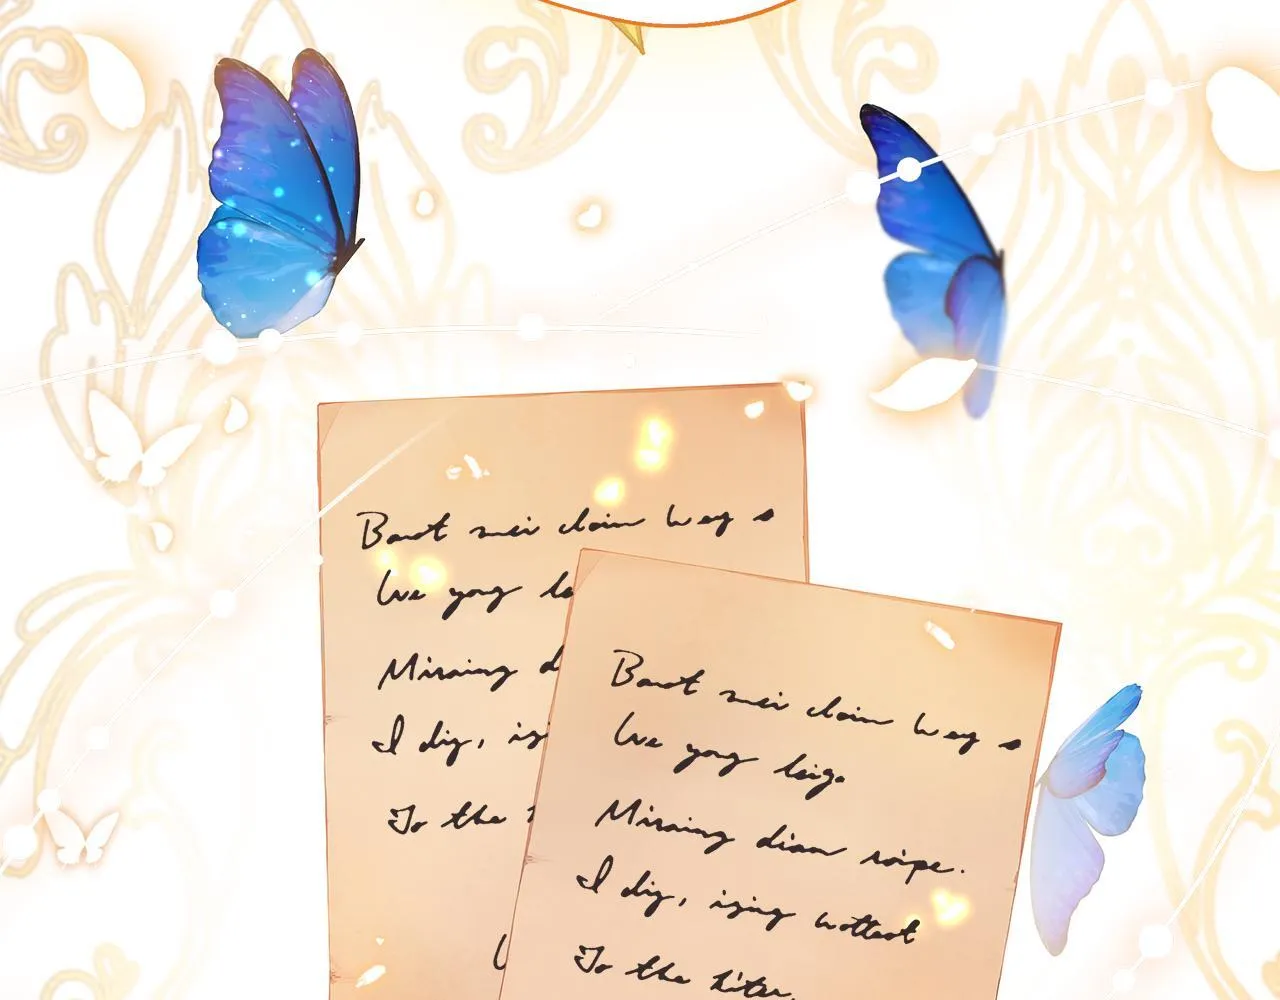 Baot mei cloin wey s
We yong le
Missing d
I dig, isi
To the
Baot mei cloin wey s
We yong leige
Missing dian roipe.
I dig, ising wotteot
To the hiter.